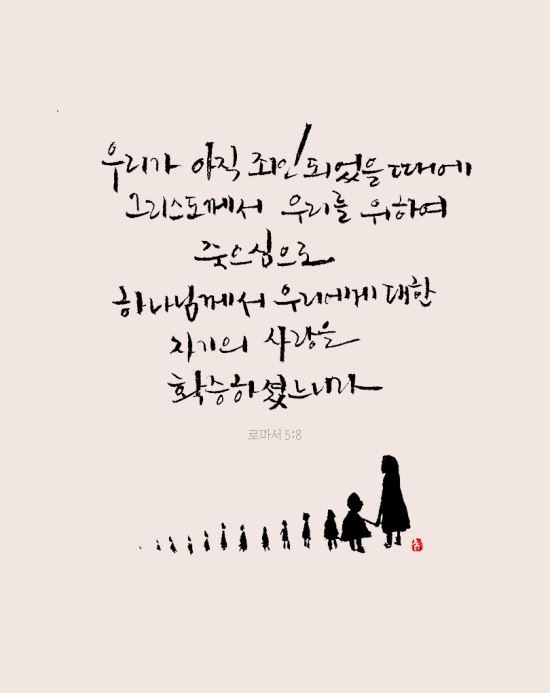 우리가 아직 죄인 되었을 때에
그리스도께서 우리를 위하여
죽으심으로
하나님께서 우리에게 대한
자기의 사랑을
확증하셨느니라
로마서 5:8